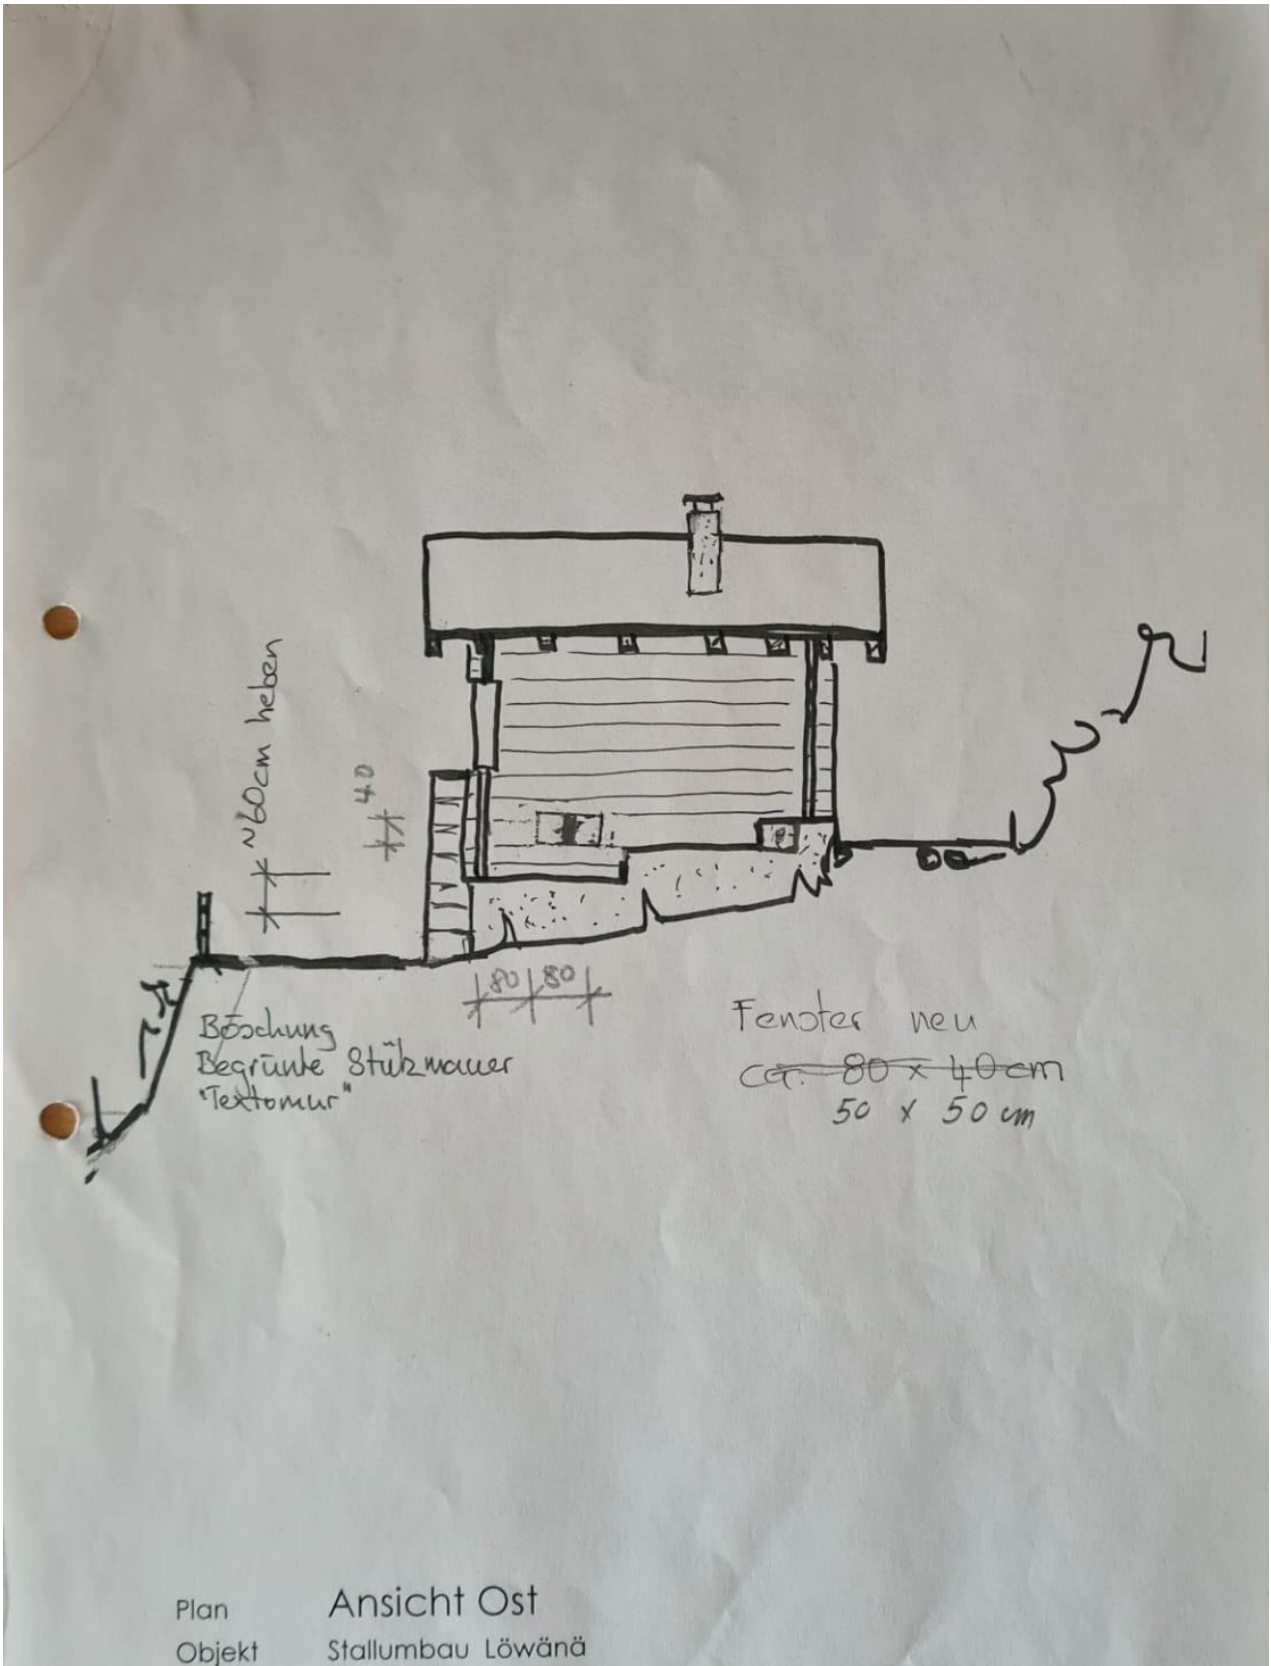 ~60cm heben
40
80 80
Böschung
Begrünte Stützmauer
"Textomur"
Fenster neu
ca. 80 x 40 cm
50 x 50 cm
Plan Ansicht Ost
Objekt Stallumbau Löwänä